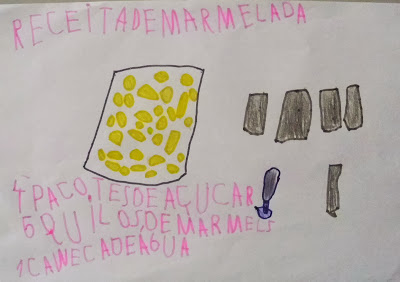 RECEITADEMARMELADA
4 PACOTESDEAÇUCAR
5 QUILOSDEMARMELS
1CANECADEÁGUA